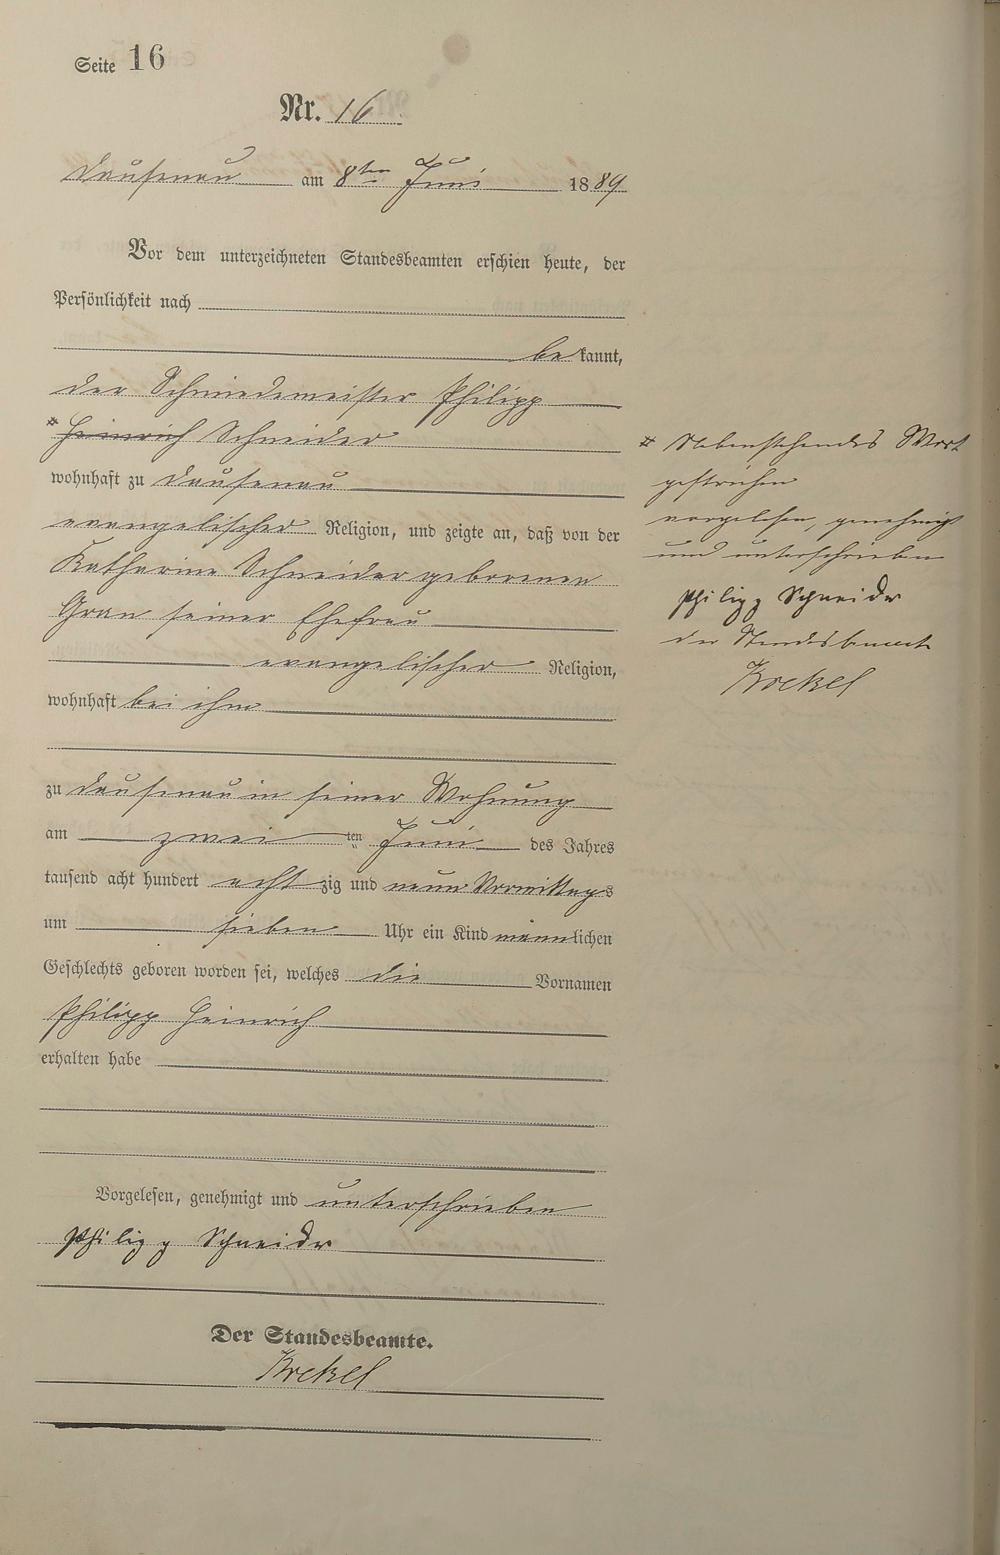 Seite 16
Nr. 16
Dausenau am 8ten Juni 1889
Vor dem unterzeichneten Standesbeamten erschien heute, der
Persönlichkeit nach
bekannt,
der Schmiedemeister Philipp
* Heinrich Schneider
wohnhaft zu Dausenau
evangelischer Religion, und zeigte an, daß von der
Katharina Schneider geborenen
seiner Ehefrau
evangelischer Religion,
wohnhaft bei ihm
zu Dausenau in seiner Wohnung
am zweiten Juni des Jahres
tausend acht hundert achtzig und neun Vormittags
um sieben Uhr ein Kind männlichen
Geschlechts geboren worden sei, welches die Vornamen
Philipp Heinrich
erhalten habe
Vorgelesen, genehmigt und unterschrieben
Philipp Schneider
Der Standesbeamte.
Krekel
* Nebenstehendes Wort
gestrichen
vorgelesen, genehmigt
und unterschrieben
Philipp Schneider
der Standesbeamte
Krekel